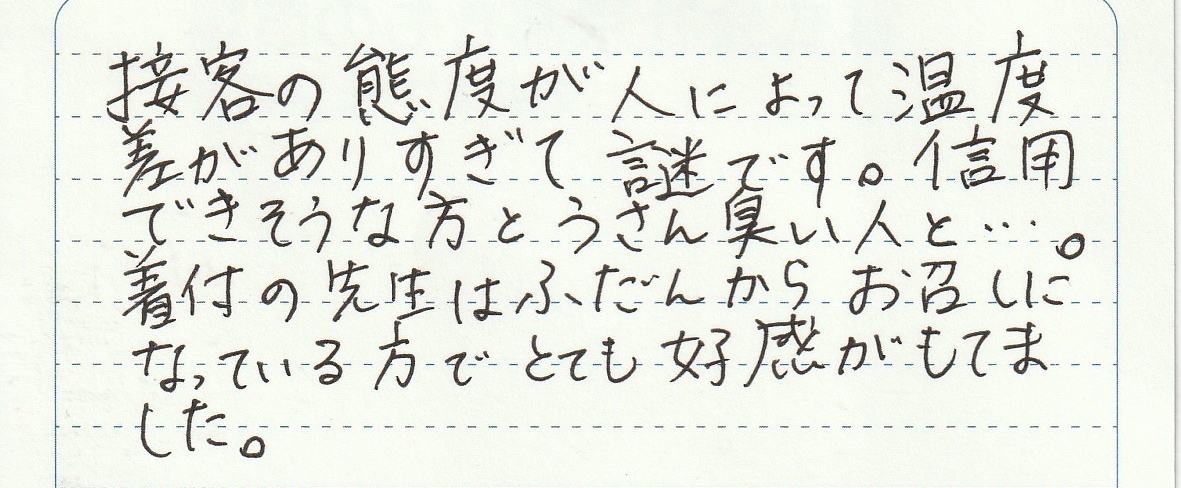 接客の態度が人によって温度
差がありすぎて謎です。信用
できそうな方とうさん臭い人と…。
着付の先生はふだんからお召しに
なっている方でとても好感がもてま
した。